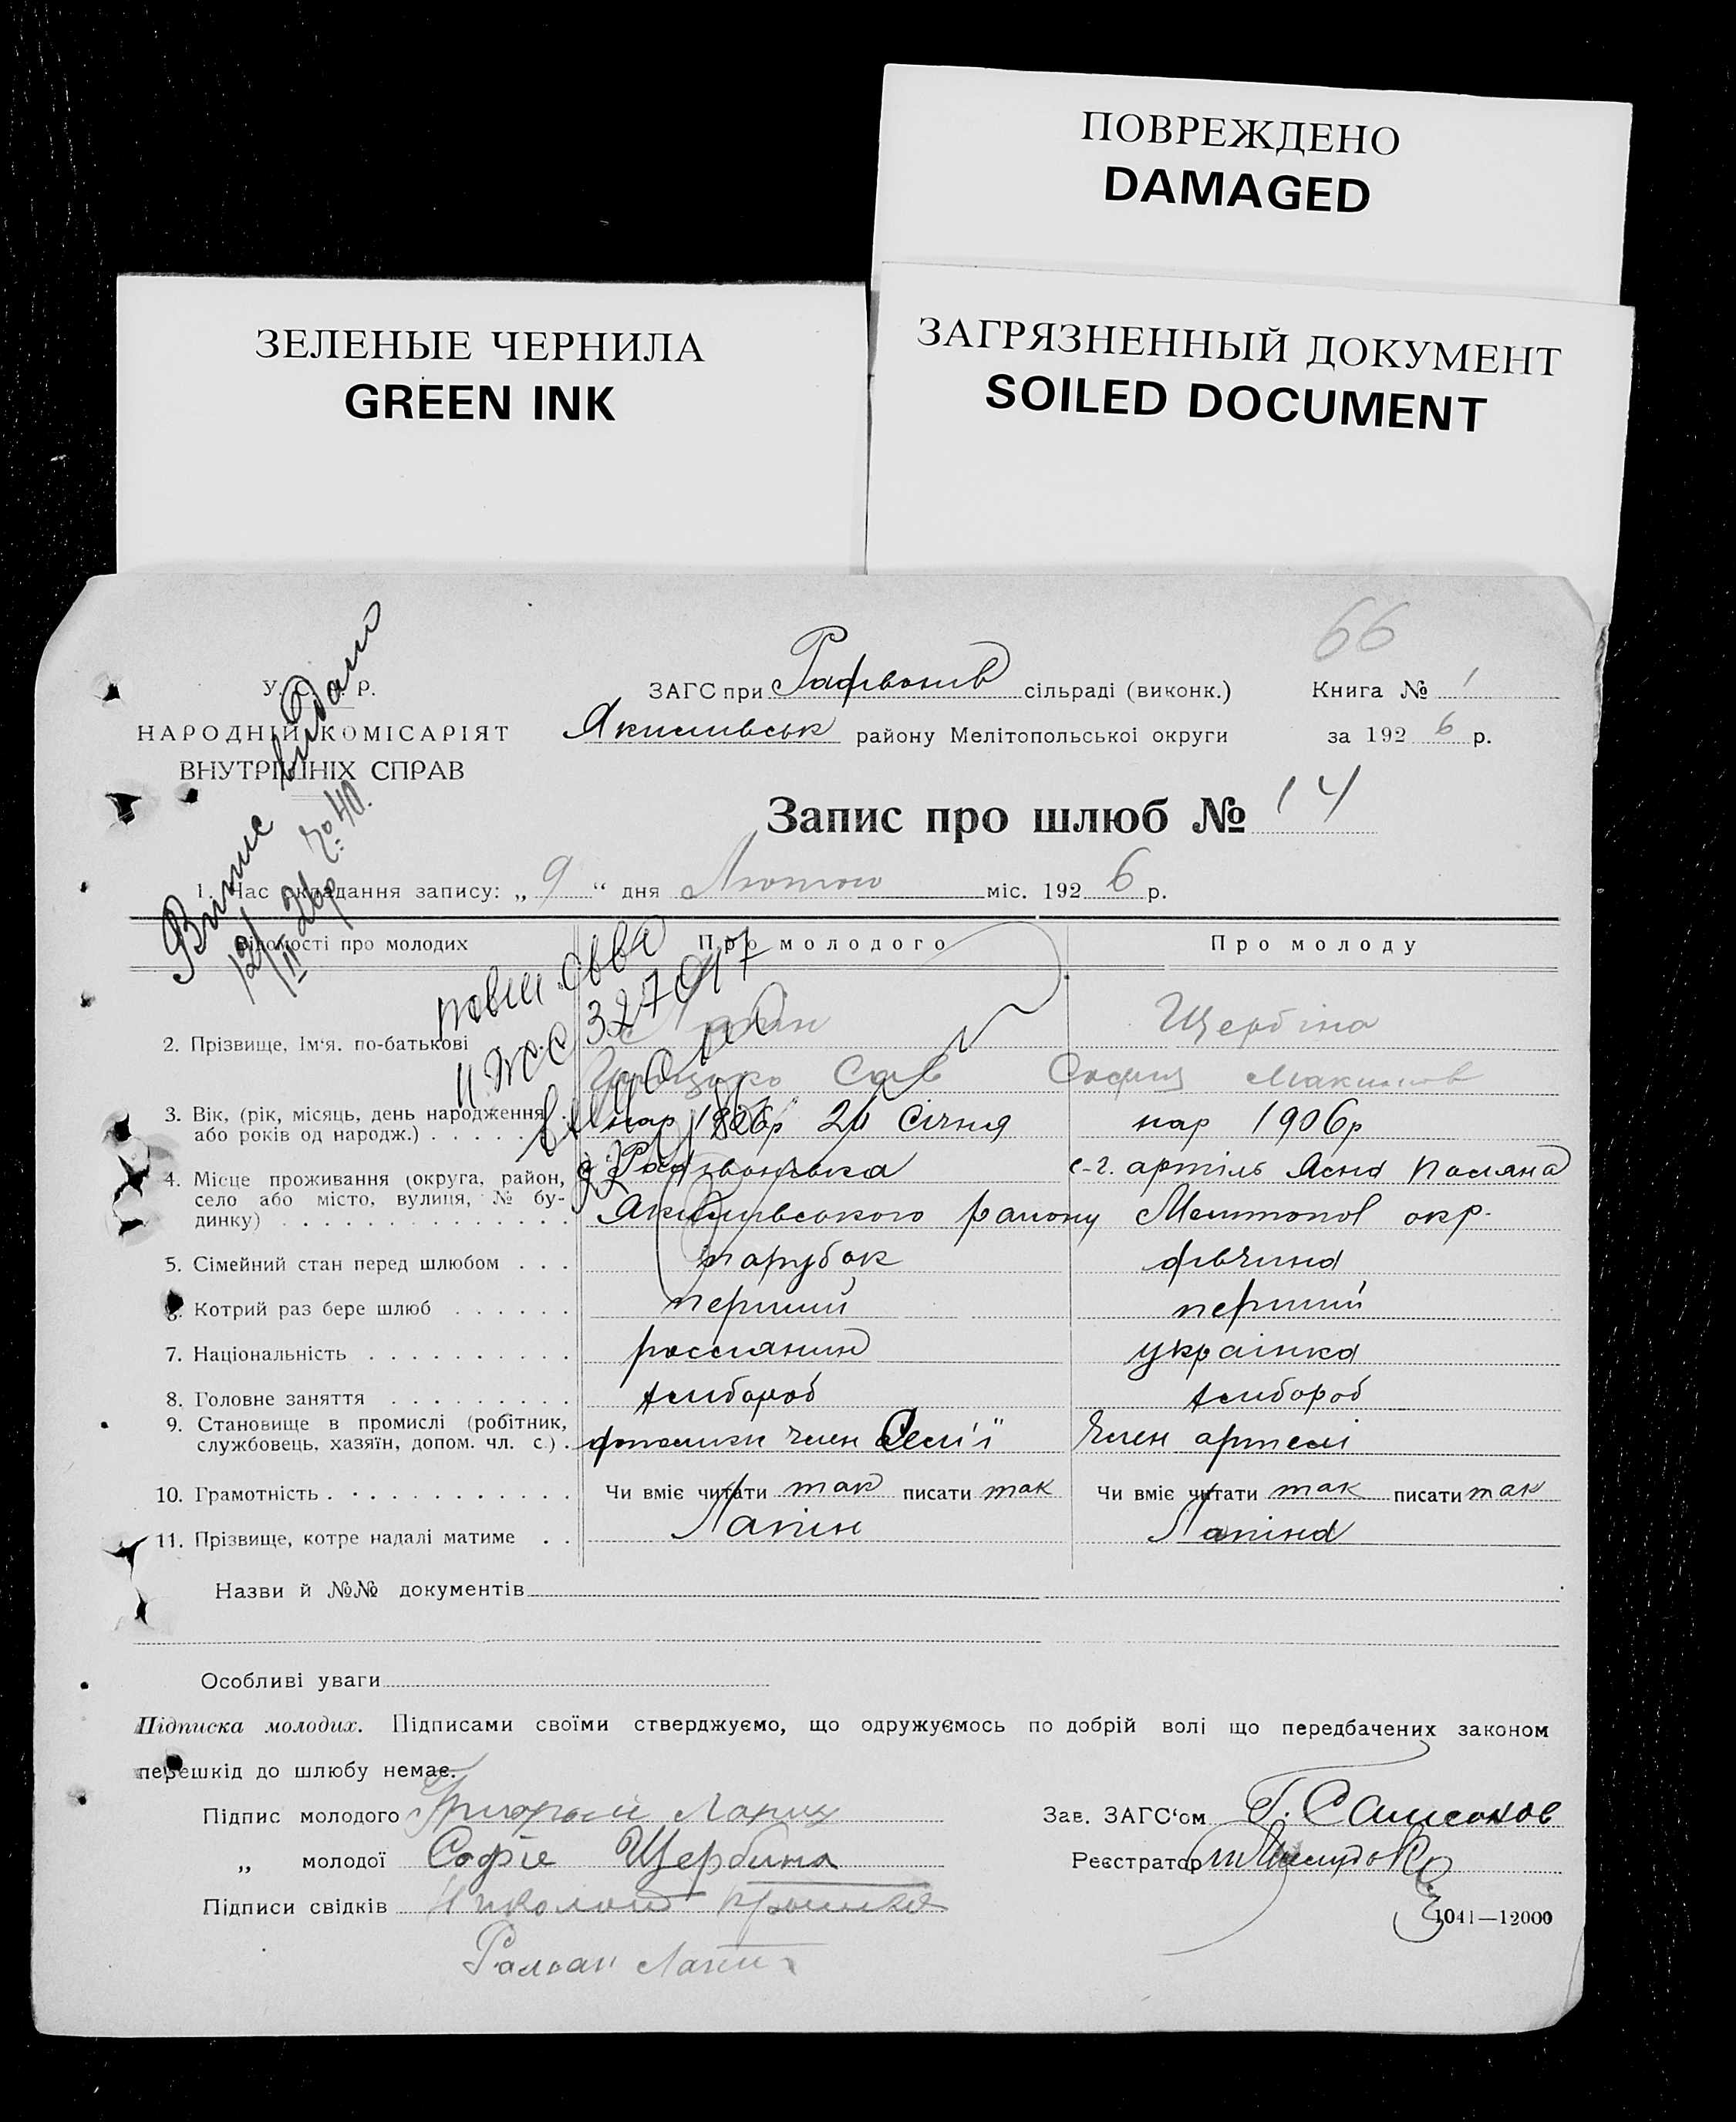 ПОВРЕЖДЕНО
DAMAGED
ЗЕЛЕНЫЕ ЧЕРНИЛА
GREEN INK
ЗАГРЯЗНЕННЫЙ ДОКУМЕНТ
SOILED DOCUMENT
66
У. С. Р. Р.
НАРОДНІЙ КОМІСАРІЯТ
ВНУТРІШНІХ СПРАВ
Випис видано
12/II 26р № 40.
ЗАГС при сільраді (виконк.)
району Мелітопольської округи
Книга № 1
за 1926 р.
Запис про шлюб № 14
1. Час складання запису: „ 9 “ дня Лютого міс. 1926 р.
Відомості про молодих Про молодого Про молоду
327017
2. Прізвище, Ім'я. по-батькові Лапін Щербіна
Сав София Максимов
3. Вік, (рік, місяць, день народження або років од народж.) нар 1906р 20 Січня нар 1906р
4. Місце проживання (округа, район, село або місто, вулиця, № будинку) с-г. артіль Ясна Поляна
району Мелитопол окр.
5. Сімейний стан перед шлюбом парубок дівчина
6. Котрий раз бере шлюб перший перший
7. Національність россиянин українка
8. Головне заняття хлібороб хлібороб
9. Становище в промислі (робітник, службовець, хазяїн, допом. чл. с.) член семії член артелі
10. Грамотність Чи вміє читати так писати так Чи вміє читати так писати так
11. Прізвище, котре надалі матиме Лапін Лапіна
Назви й №№ документів
Особливі уваги
Підписка молодих. Підписами своїми стверджуємо, що одружуємось по добрій волі що передбачених законом
перешкід до шлюбу немає.
Підпис молодого Григорий Лапин
Зав. ЗАГС'ом Г. Самсонов
„ молодої Софіе Щербина
Реєстратор
Підписи свідків Николай
1041—12000
Роман Лапин